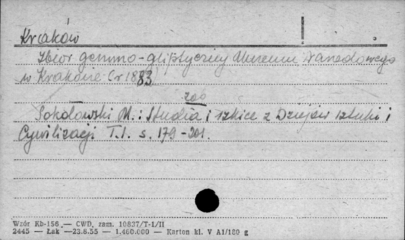 Kraków
Zbiór gemmo-gliptyczny Muzeum Narodowego
w Krakowie Cr 1883
zob
Sokołowski M.: Studia i szkice z Dziejów sztuki i
Cywilizacji T.I. s. 179-201.
Wzór Kb-156 — CWD, zam. 10837/T-I/II
2445 — Łak —23.8.55 — 1,460.000 — Karton kl. V A1/180 g